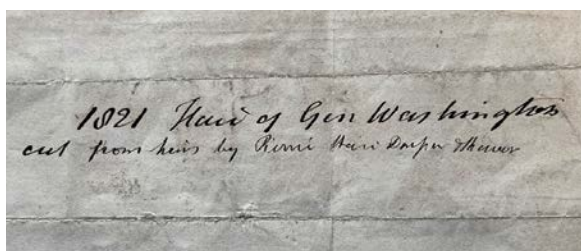 1821 Hair of Gen Washington
cut from his by Pierre Hair Dresser